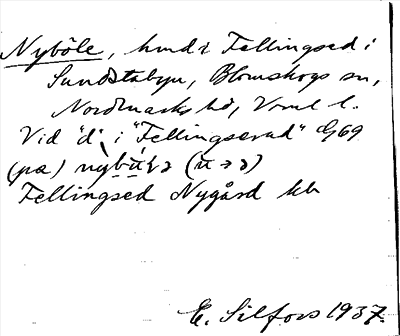 Nyböle, hmd i Fellingsed i
Sundstabyn, Blomskogs sn,
Nordmarks hd, Vrml l.
Vid "d" i "Fellingserud" G69
(pa)
Fellingsed Nygård hb
E. Silfors 1937.